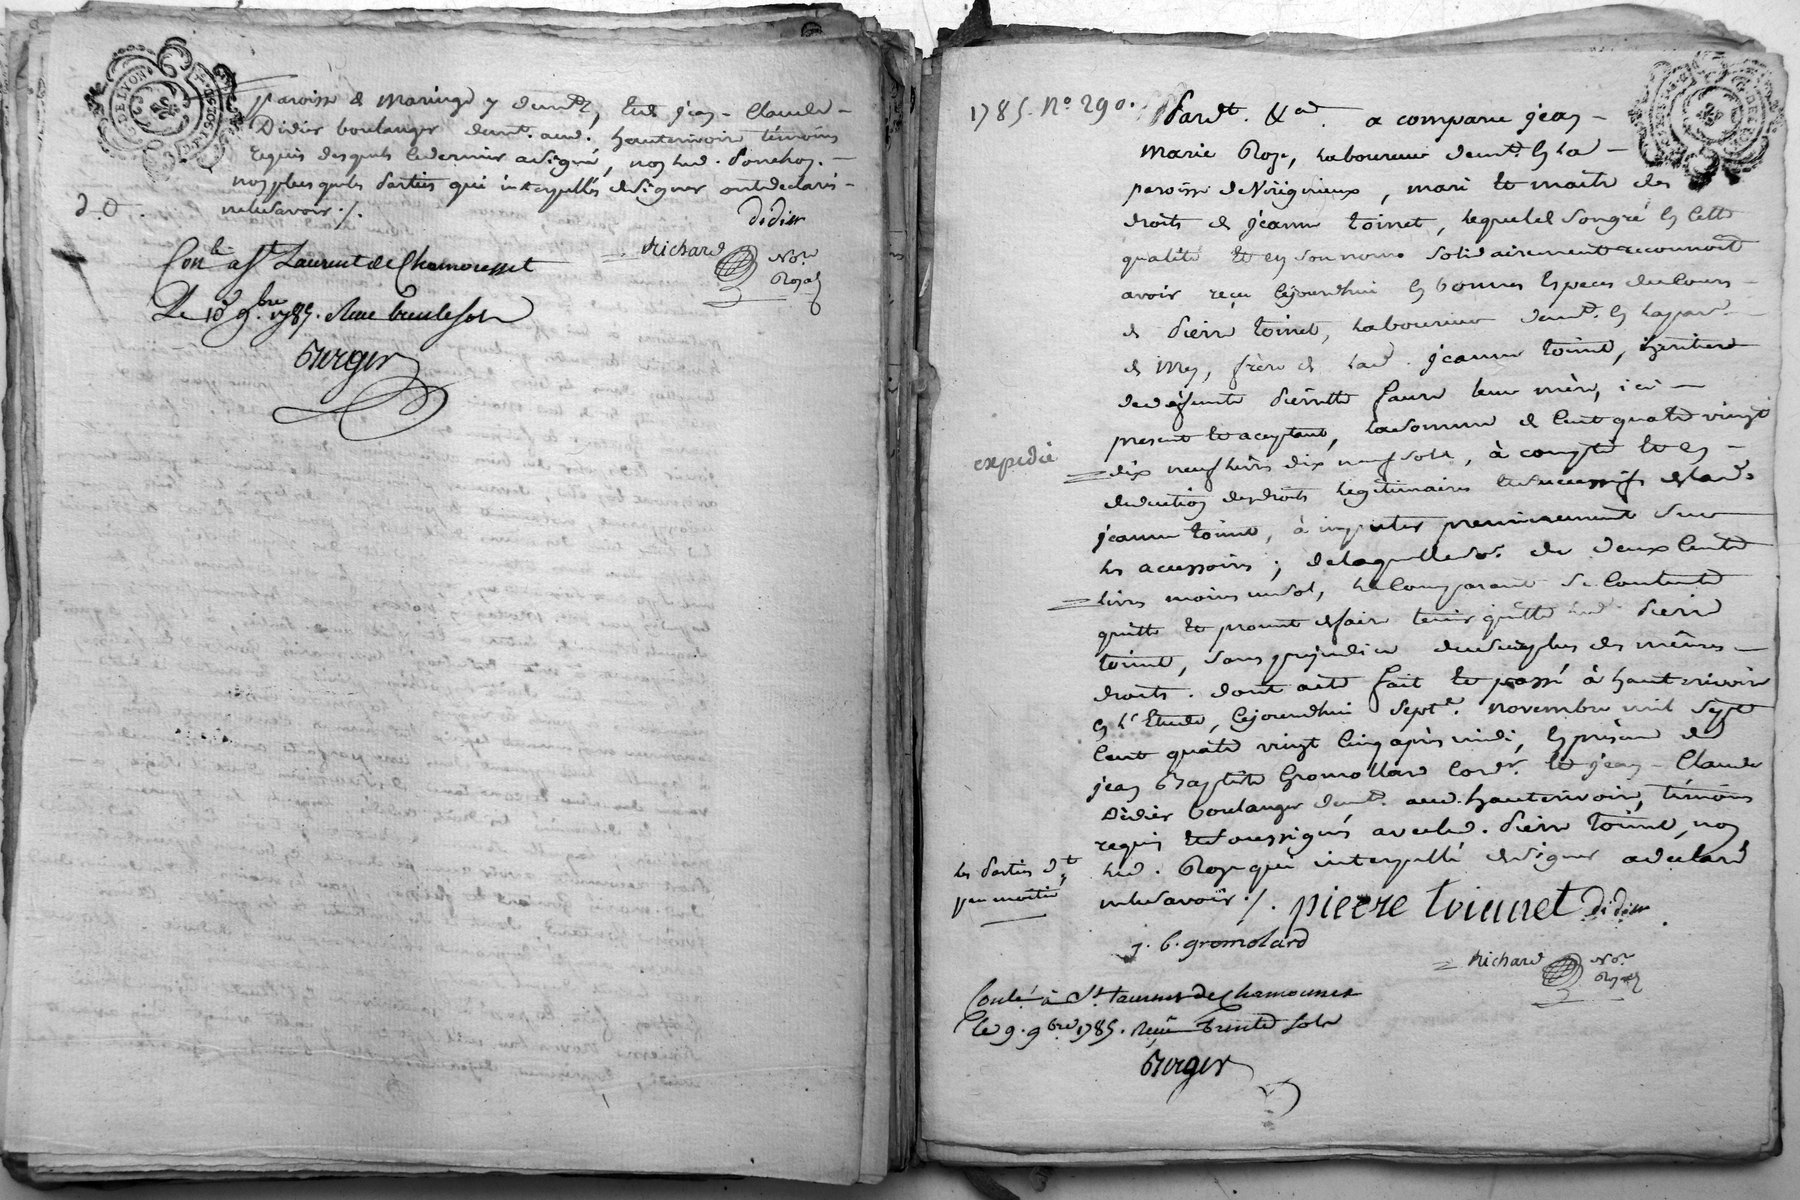 DE LYON
paroisse de Maringe y demt, et de jean - Claude -
Didier boulanger demt. aud. hauterivoir témoins
requis desquels le dernier a signé, non led. Ponchon. -
non plus que les parties qui interpellés de signer ont declaré -
ne le savoir ./.
didier
Richard Nore
Royal
Conlé a St Laurent de Chamousset
Le 10 9.bre 1785. Reçu trente sols
Berger
1785. No. 290.
Pardt. &a. a comparu jean -
Marie Roze, laboureur demt. en la -
paroisse de Virignieux, mari et maitre des
droits de jeanne toinet, lequel de son gré en cette
qualité et en son nom solidairement reconnoit
avoir reçu cejourdhui en bonnes especes du cours -
de pierre toinet, laboureur demt. en la par. -
de Mey, frere de lad. jeanne toinet, heritier
de defunte pierrette faure leur mère, ici -
present et aceptant, la somme de cent quatre vingt
dix neuf livres dix neuf sols, à compte et en -
expedié
deduction des droits legitimaires et successifs de lad.
jeanne toinet, à imputer premierement sur
les accessoires ; de laquelle so. de deux cents
livres moins un sol, le comparant se contente
quitte et promet de faire tenir quitte led. pierre
toinet, sans prejudice du surplus des mêmes -
droits. dont acte fait et passé à hauterivoir
en l'Etude, cejourdhui sept. novembre mil sept
cent quatre vingt cinq après midi, en présence de
jean Baptiste Gromollard cordr. et jean - Claude
Didier boulanger demt. aud. hauterivoir, témoins
requis et soussignés avec led. pierre toinet, non
led. Roze qui interpellé de signer a declaré
les parties dt
par moitié
ne le savoir ./. pierre toinnet didier
j. b. gromolard
Richard Nore
Royal
Conlé à St. Laurent de Chamousset
le 9. 9bre 1785. Reçu trente sols
Berger